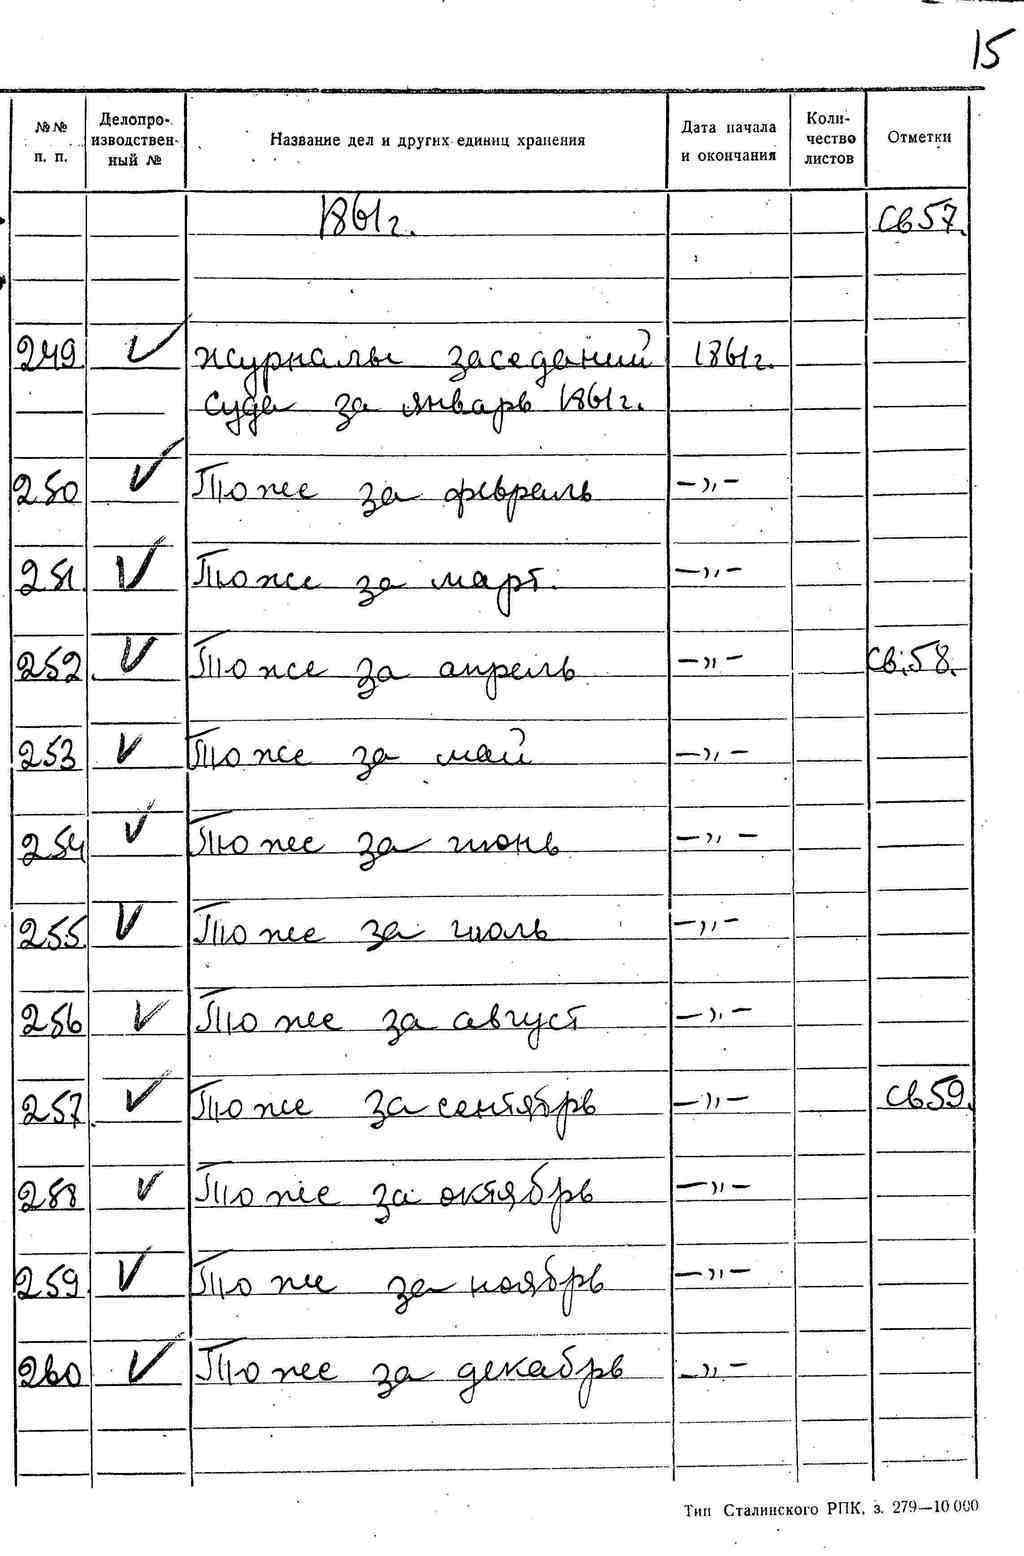 15
№№ п. п. Делопроизводственный № Название дел и других единиц хранения Дата начала и окончания Количество листов Отметки
1861г. св57.
249. V журналы заседаний 1861г.
суда за январь 1861г.
250 V То же за февраль -„-
251. V То же за март. -„-
252 V То же за апрель -„- св.58.
253 V То же за май -„-
254 V То же за июнь -„-
255 V То же за июль -„-
256 V То же за август -„-
257 V То же за сентябрь -„- св59.
258 V То же за октябрь -„-
259. V То же за ноябрь -„-
260 V То же за декабрь -„-
Тип Сталинского РПК, з. 279—10 000